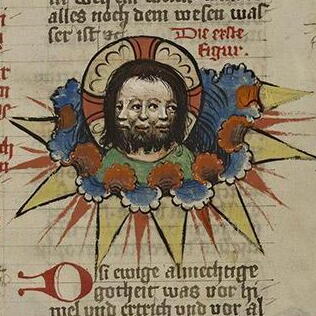 alles noch dem wesen was
ser ist ⁊c
Die erste
figur.
Die ewige almechtige
gotheit was vor hi
mel und ertrich und vor al